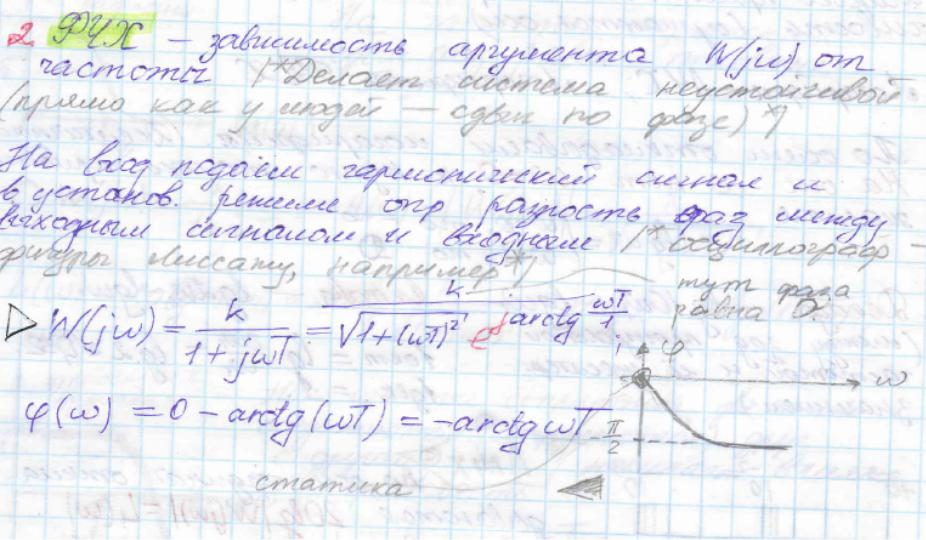 2. ФЧХ – зависимость аргумента W(jω) от
частоты /*Делает система неустойчивой
(прямо как у людей – сдвиг по фазе)*/
На вход подаём гармонический сигнал и
в установ. режиме опр разность фаз между
выходным сигналом и входным /*осциллограф –
фигуры Лиссажу, например*/
тут фаза
равна 0.
W(jω) = k / (1 + jωT) = k / (√(1+(ωT)²) e^(j arctg ωT/1))
φ
ω
φ(ω) = 0 – arctg(ωT) = –arctg ωT
π/2
статика